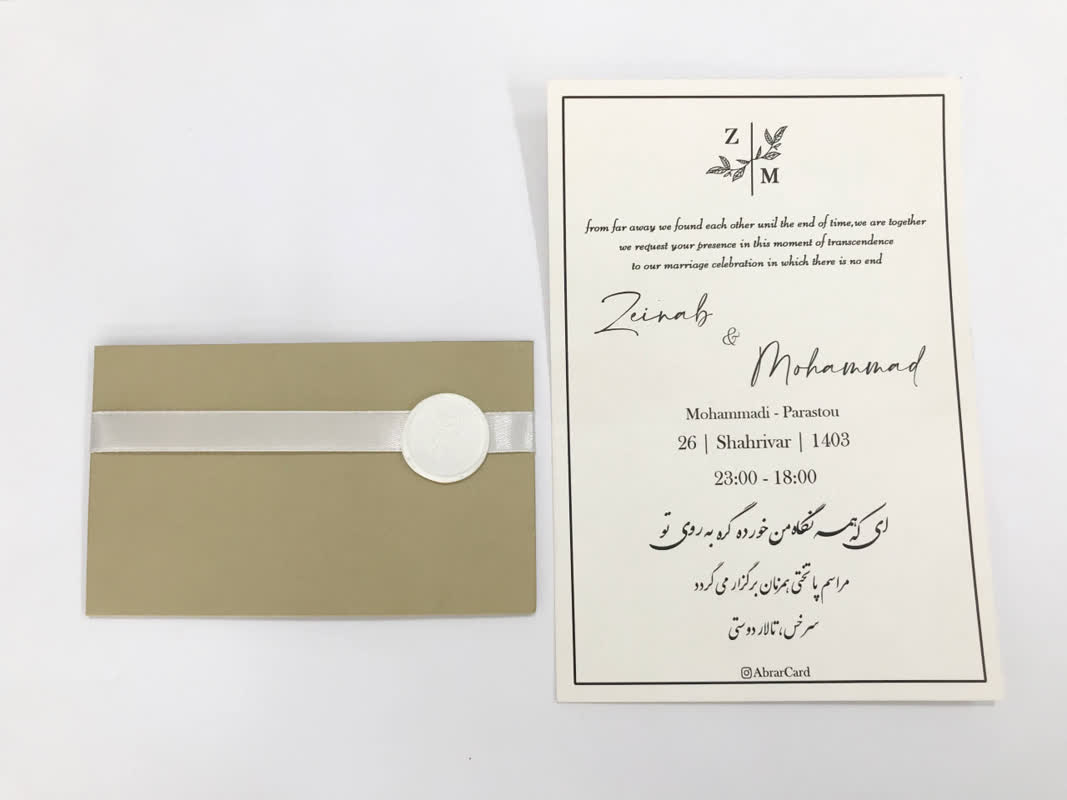 Z
M
from far away we found each other unil the end of time,we are together
we request your presence in this moment of transcendence
to our marriage celebration in which there is no end
Zeinab
&
Mohammad
Mohammadi - Parastou
26 | Shahrivar | 1403
23:00 - 18:00
ای که همه نگاه من خورده گره به روی تو
مراسم پاتختی همزمان برگزار می گردد
سرخس، تالار دوستی
AbrarCard